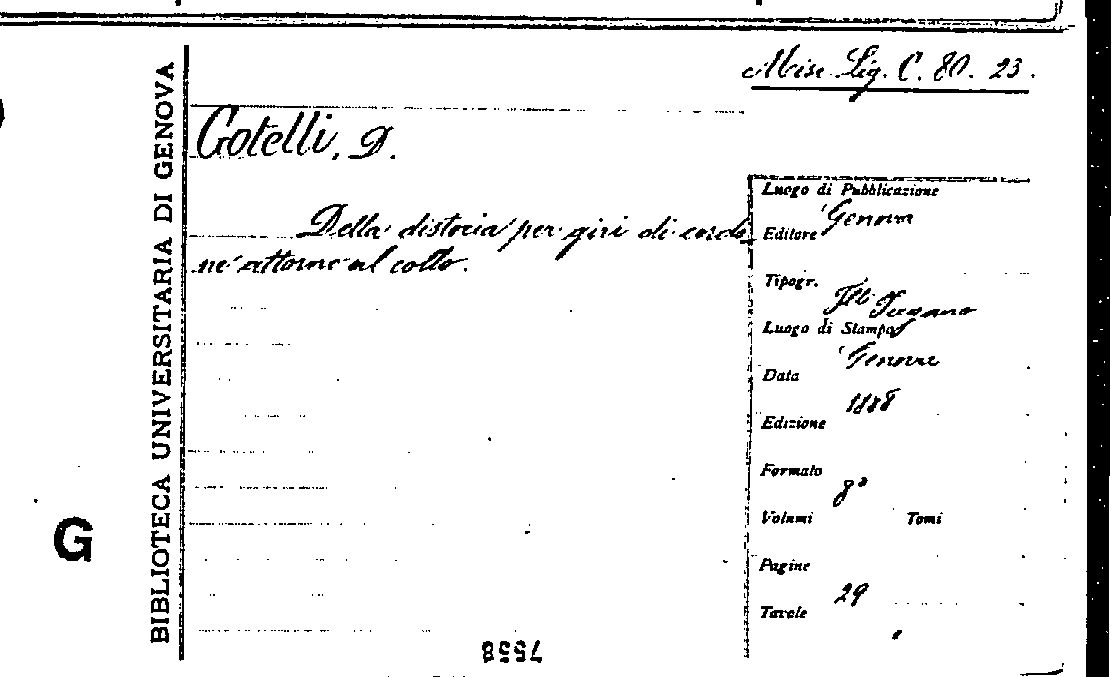 Misc. Lig. C. 80. 23.
BIBLIOTECA UNIVERSITARIA DI GENOVA
Gotelli, D.
Della distocia per giri di cordo
ne attorno al collo.
Luogo di Pubblicazione
Genova
Editore
Tipogr.
Luogo di Stampa
Genova
Data
1888
Edizione
Formato
8°
Volumi Tomi
Pagine
29
Tavole
G
7558